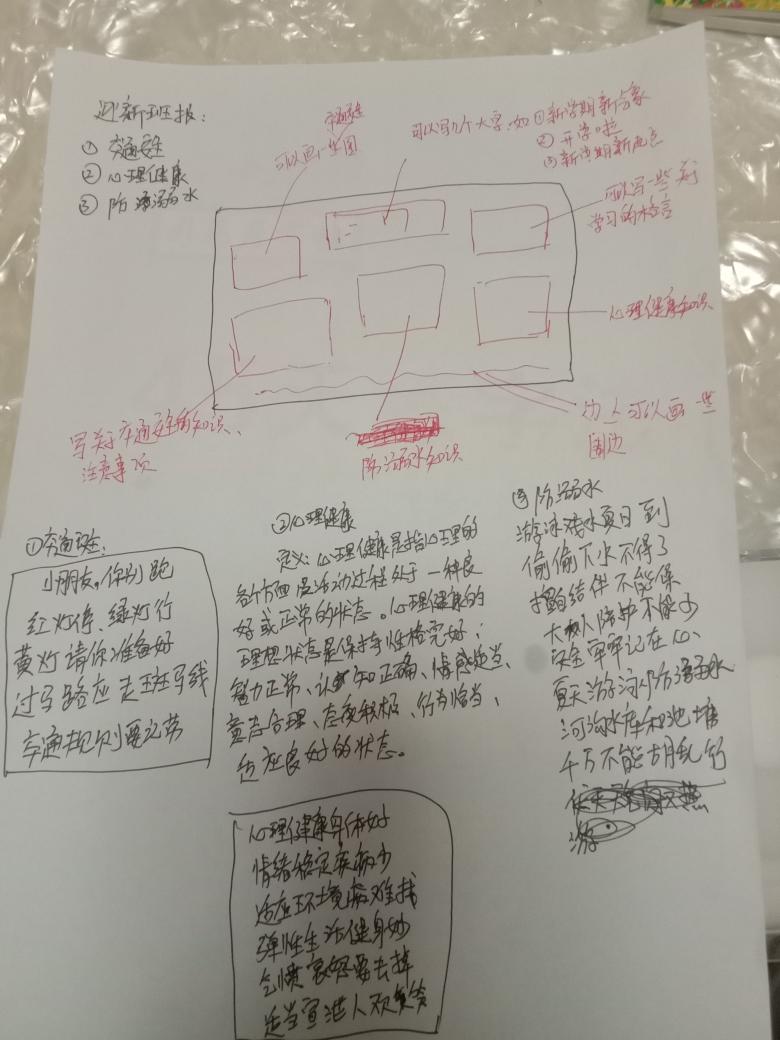 迎新班报:
① 交通安全
② 心理健康
③ 防溺水
交通安全
可以画一些图
可以写几个大字,如①新学期新气象
② 开学啦
③ 新学期新起点
可以写一些关于
学习的格言
心理健康知识
边上可以画一些
图边
写关于交通安全的知识、
注意事项
防溺水知识
①交通安全:
小朋友,你别跑
红灯停、绿灯行
黄灯请你准备好
过马路应走斑马线
交通规则要记劳
②心理健康
定义:心理健康是指心理的
各个方面及活动过程处于一种良
好或正常的状态。心理健康的
理想状态是保持性格完好;
智力正常、认知正确、情感适当、
意志合理、态度积极、行为恰当、
适应良好的状态。
心理健康身体好
情绪稳定疾病少
适应环境
弹性生活健身妙
气愤哀怒要去掉
适当宣泄人欢笑
③防溺水
游泳戏水夏日到
偷偷下水不得了
擅自结伴不能保
大人陪护不能少
安全牢牢记在心、
夏天游泳防溺水
河沟水库和池塘
千万不能胡乱
游